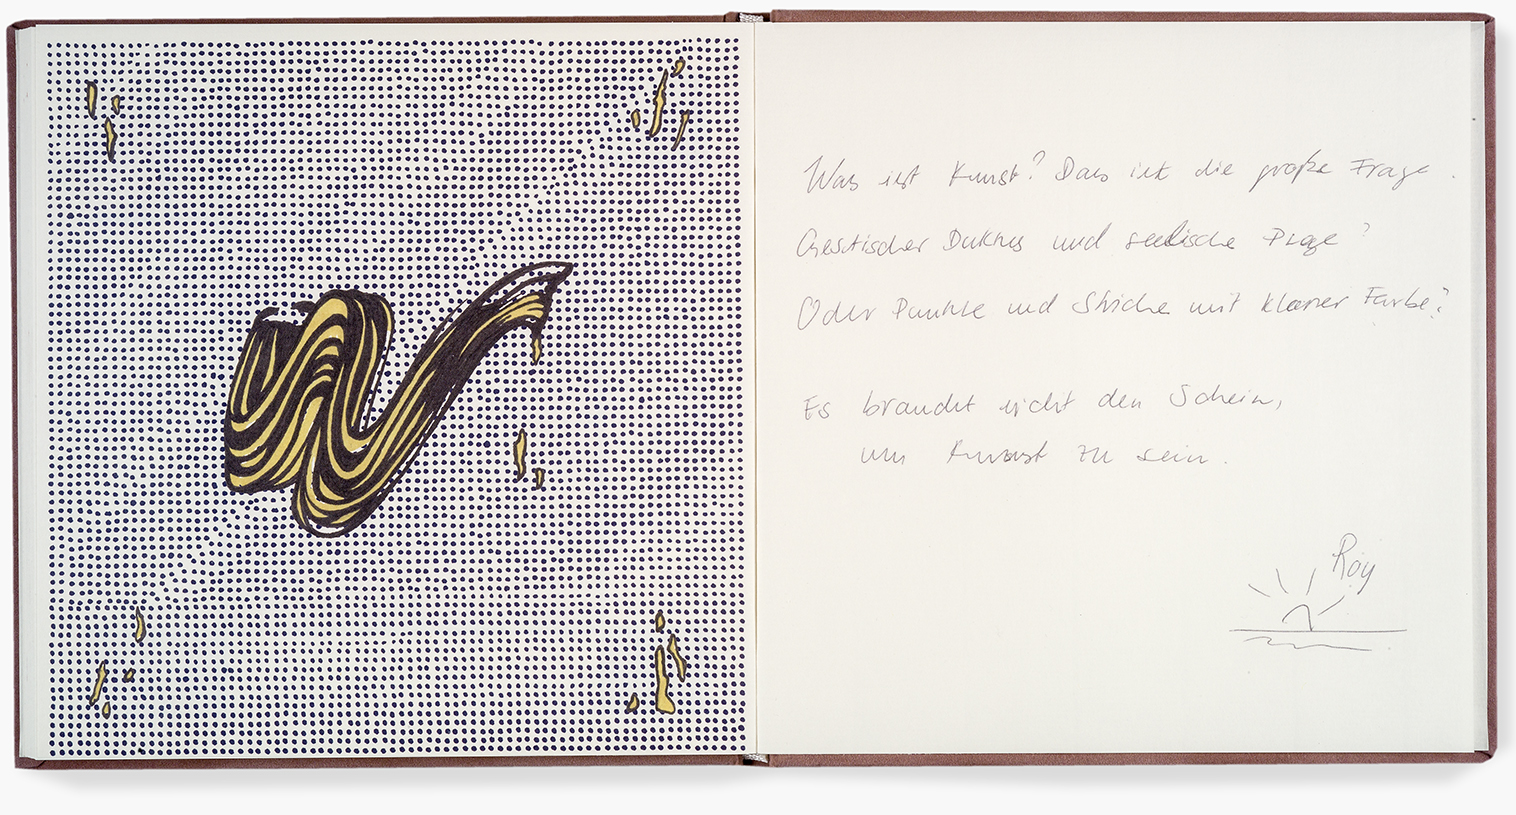 Was ist Kunst? Das ist die große Frage.
Gestischer Duktus und seelische Plage?
Oder Punkte und Striche mit klarer Farbe?
Es braucht nicht den Schein,
um Kunst zu sein.
Roy